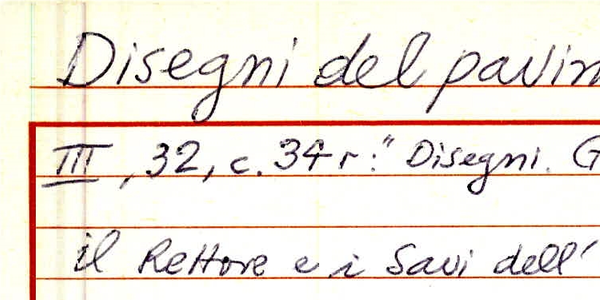 Disegni del pavim
III, 32, c. 34r: " Disegni. G
il Rettore e i Savi dell'